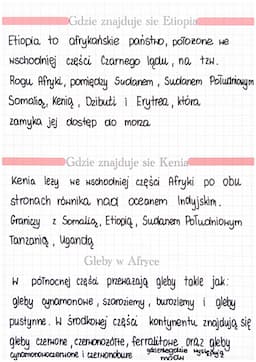 Gdzie znajduje sie Etiopia
Etiopia to afrykańskie państwo, położone we
wschodniej części Czarnego lądu, na tzw.
Rogu Afryki, pomiędzy Sudanem, Sudanem Południowym
Somalią, Kenią, Dżibuti i Erytrea, która
zamyka jej dostęp do morza
Gdzie znajduje sie Kenia
Kenia leży we wschodniej części Afryki po obu
stronach równika nad oceanem Indyjskim.
Graniczy z Somalią, Etiopią, Sudanem Południowym
Tanzanią, Ugandą
Gleby w Afryce
W północnej części przeważają gleby takie jak:
gleby cynamonowe, szaroziemy, buroziemy i gleby
pustynne. W środkowej części kontynentu znajdują się
gleby czerwone, czerwonożółte, ferralitowe oraz gleby
cynamonowoczerwone i czerwonobure gdzieniegdzie występują
mady